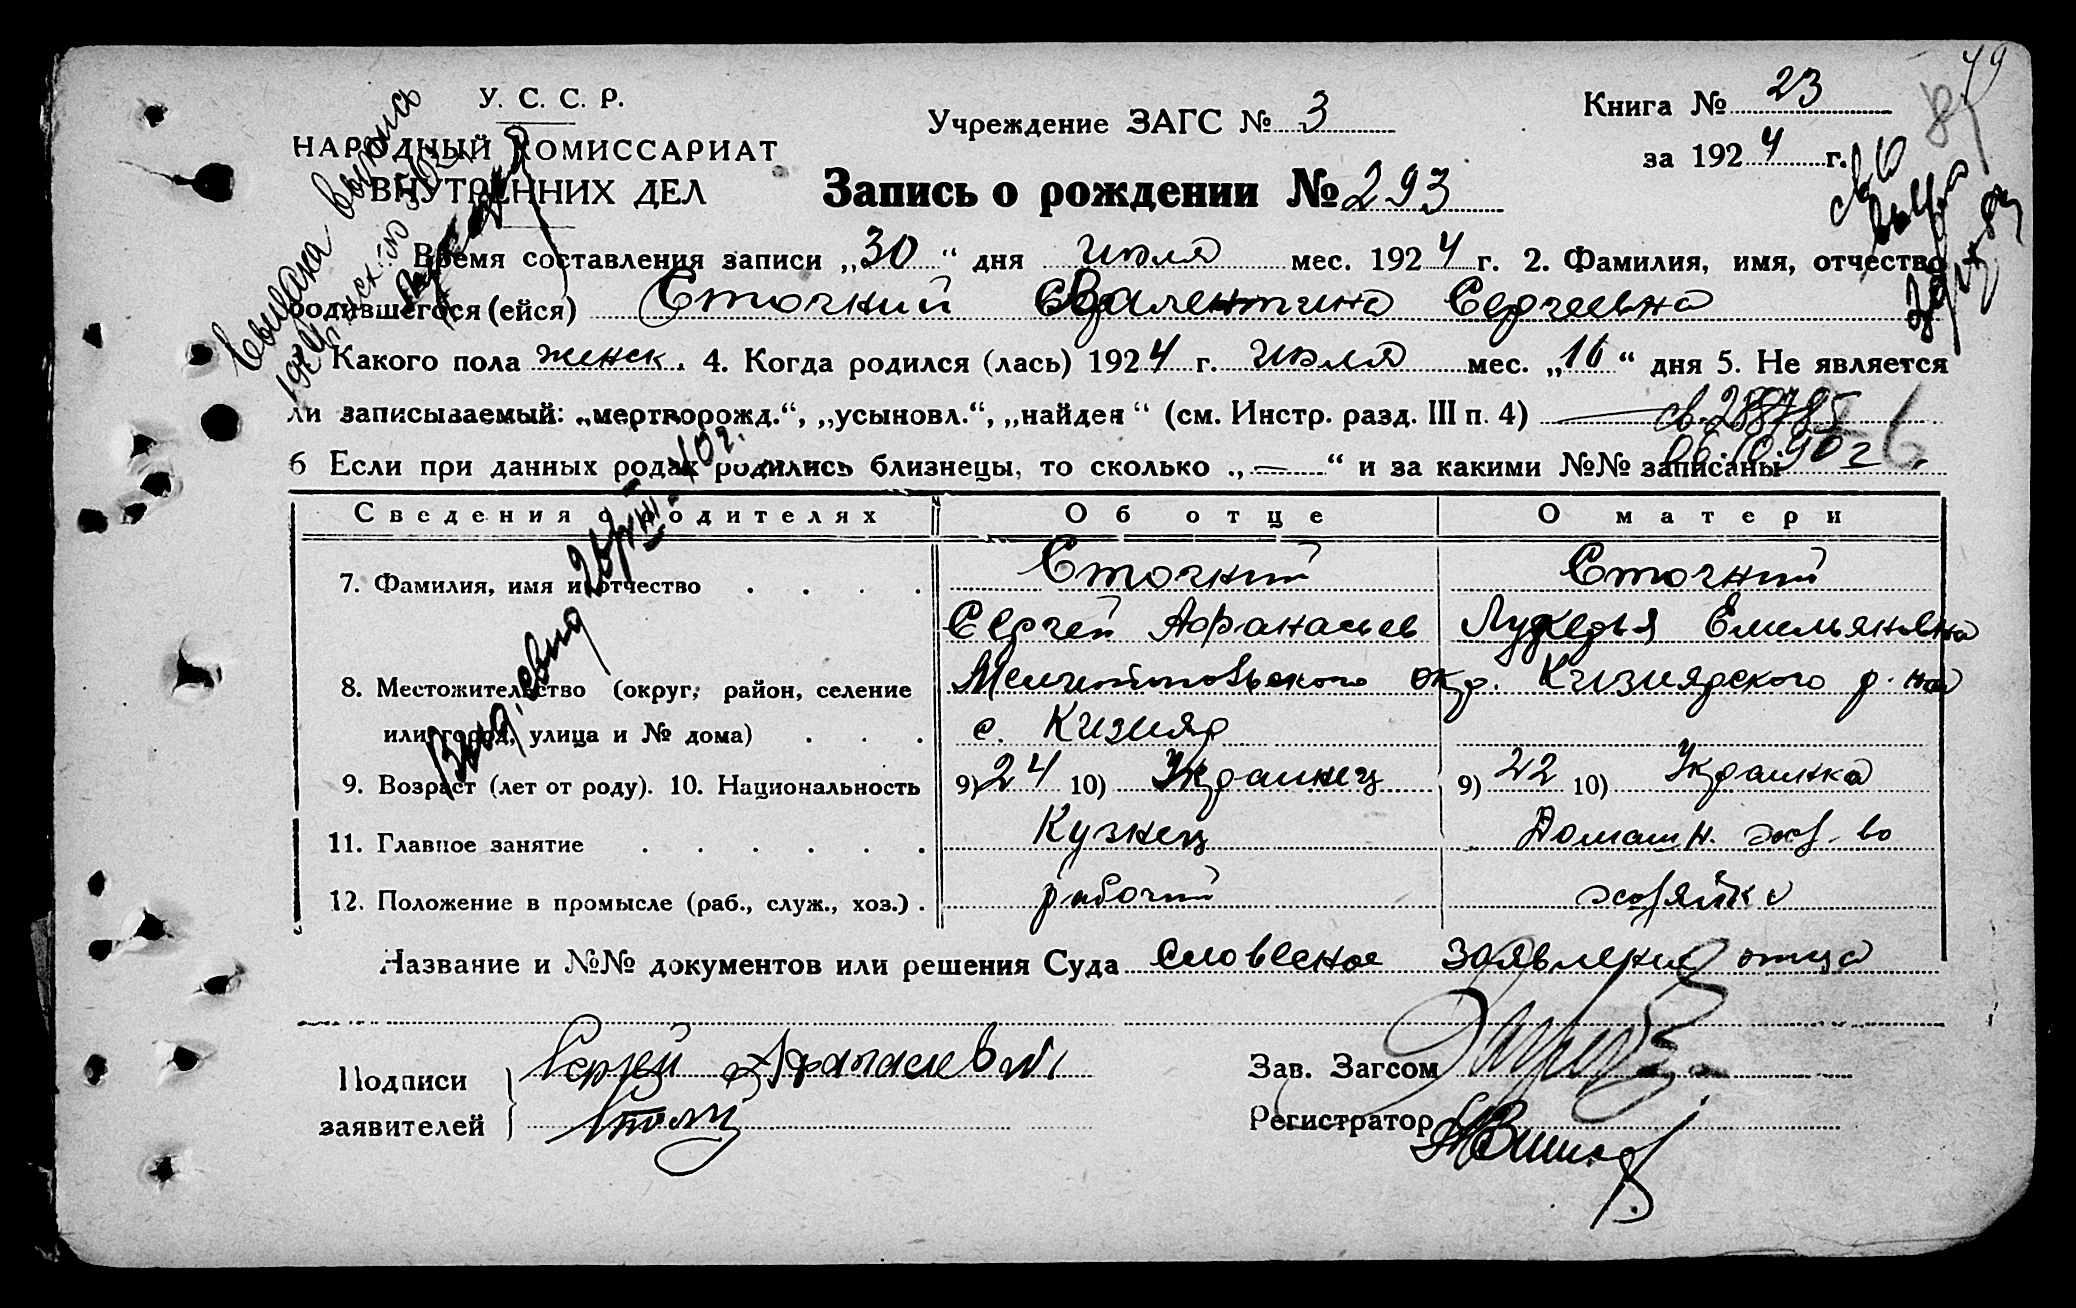 У. С. С. Р.
НАРОДНЫЙ КОМИССАРИАТ
ВНУТРЕННИХ ДЕЛ
Учреждение ЗАГС № 3
Книга № 23
за 1924 г.
Запись о рождении № 293
Время составления записи „30“ дня июля мес. 1924 г. 2. Фамилия, имя, отчество
родившегося (ейся) Сточкий Валентина Сергеевна
Какого пола женск. 4. Когда родился (лась) 1924 г. июля мес. „16“ дня 5. Не является
ли записываемый: „мертворожд.“, „усыновл.“, „найден“ (см. Инстр. разд. III п. 4) св. 288785
6 Если при данных родах родились близнецы, то сколько „—“ и за какими №№ записаны 06.10.90 г
Сведения о родителях Об отце О матери
7. Фамилия, имя и отчество Сточкий Сточкий
Сергей Афанасьев Лукерья Емельяновна
8. Местожительство (округ, район, селение Мелитопольского окр. Кизиярского р-на
или город, улица и № дома) с. Кизияр
9. Возраст (лет от роду). 10. Национальность 9) 24 10) Украинец 9) 22 10) Украинка
11. Главное занятие Кузнец Домашн. хоз-во
12. Положение в промысле (раб., служ., хоз.) рабочий хозяйка
Название и №№ документов или решения Суда словесное заявление отца
Подписи
заявителей
Сергей Афанасиевич
Зав. Загсом
Регистратор